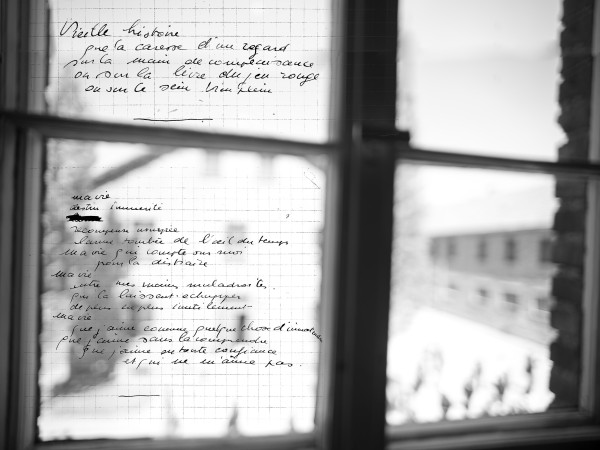 Vieille histoire
que la caresse d'un regard
sur la main de complaisance
ou sur la lèvre du jeu rouge
ou sur le sein
ma vie
destin immérité
récompense usurpée
larme tombée de l'œil du temps
ma vie qui compte sur moi
pour la distraire
ma vie
entre mes mains maladroites
qui la laissent échapper
de plus en plus inutilement
ma vie
que j'aime comme quelque chose
que j'aime sans la comprendre
que j'aime en toute confiance
et qui ne m'aime pas.